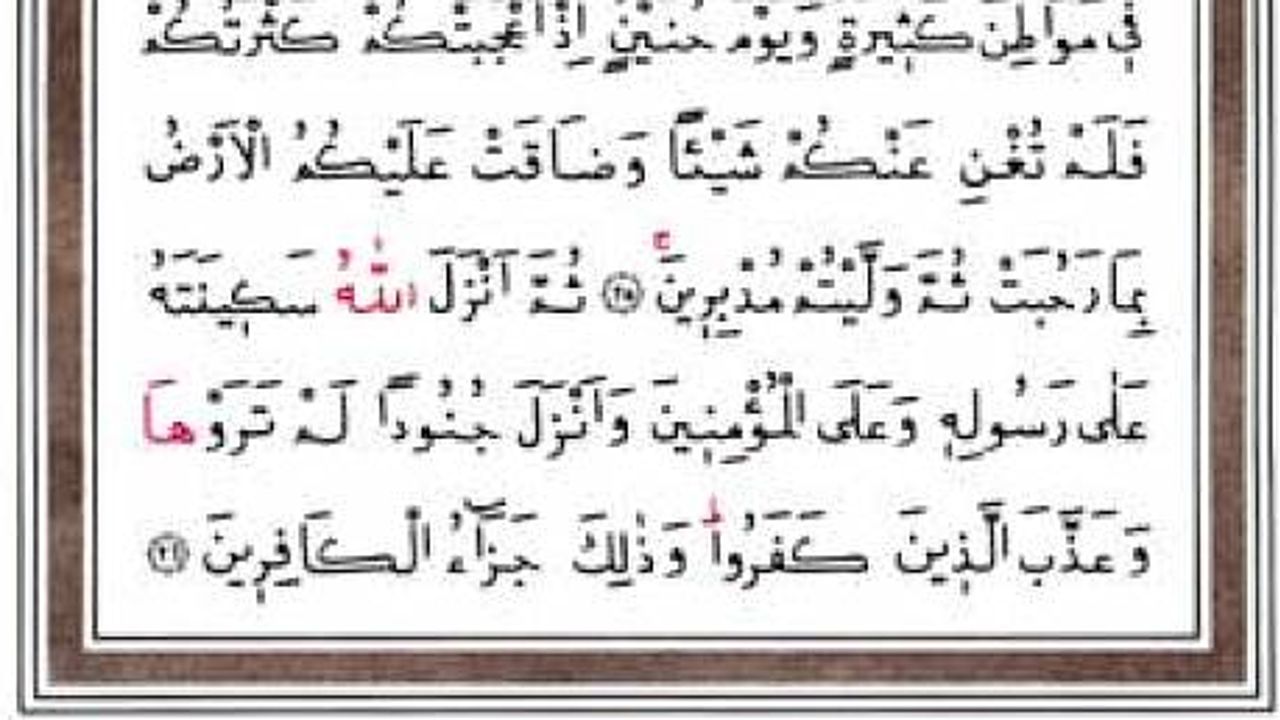 فِي مَوَاطِنَ كَثِيرَةٍ وَيَوْمَ حُنَيْنٍ إِذْ اَعْجَبَتْكُمْ كَثْرَتُكُمْ
فَلَمْ تُغْنِ عَنْكُمْ شَيْئًا وَضَاقَتْ عَلَيْكُمُ الْاَرْضُ
بِمَا رَحُبَتْ ثُمَّ وَلَّيْتُمْ مُدْبِرِينَۚ ﴿٢٥﴾ ثُمَّ اَنْزَلَ اللّٰهُ سَكِينَتَهُ
عَلٰى رَسُولِهِ وَعَلَى الْمُؤْمِنِينَ وَاَنْزَلَ جُنُودًا لَمْ تَرَوْهَا
وَعَذَّبَ الَّذِينَ كَفَرُواۜ وَذٰلِكَ جَزَٓاءُ الْكَافِرِينَ ﴿٢٦﴾